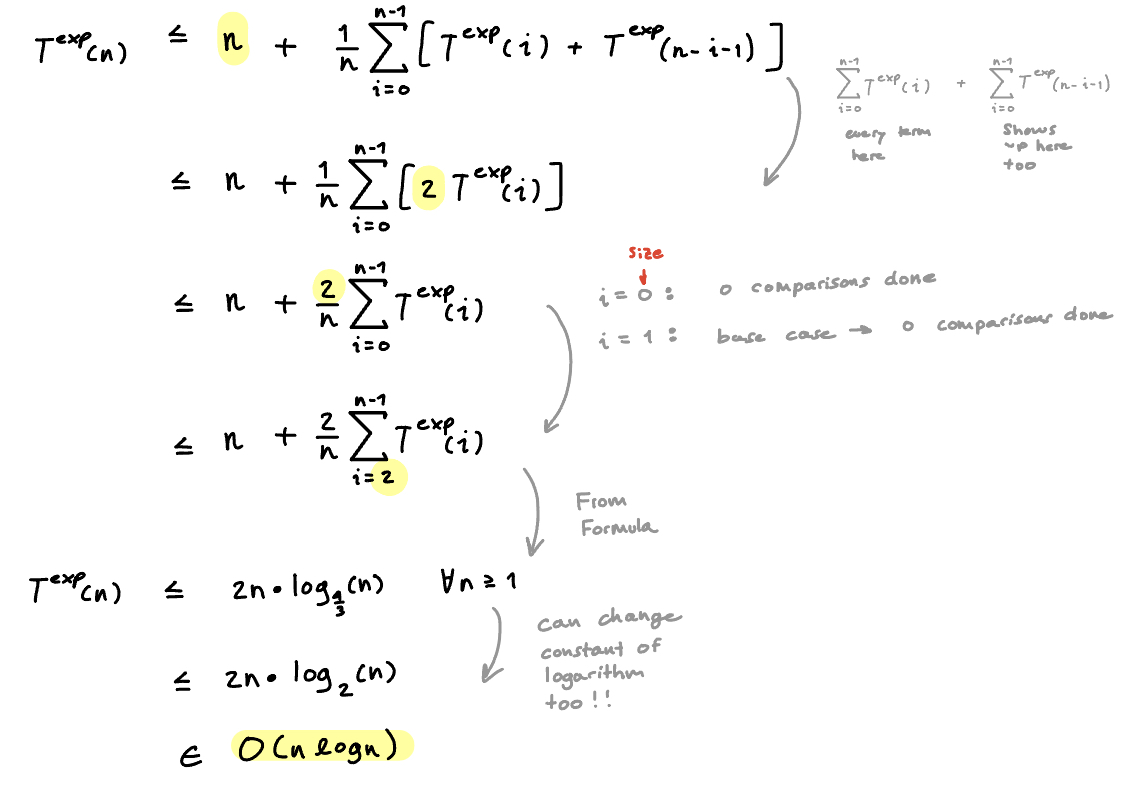 T^exp(n) ≤ n + 1/n ∑_{i=0}^{n-1} [T^exp(i) + T^exp(n-i-1)]
∑_{i=0}^{n-1} T^exp(i) + ∑_{i=0}^{n-1} T^exp(n-i-1)
every term here
Shows up here too
≤ n + 1/n ∑_{i=0}^{n-1} [2 T^exp(i)]
≤ n + 2/n ∑_{i=0}^{n-1} T^exp(i)
size
i = 0 : 0 comparisons done
i = 1 : base case → 0 comparisons done
≤ n + 2/n ∑_{i=2}^{n-1} T^exp(i)
From
Formula
T^exp(n) ≤ 2n • log_{4/3}(n) ∀n ≥ 1
can change
constant of
logarithm
too !!
≤ 2n • log_2(n)
∈ O(n log n)